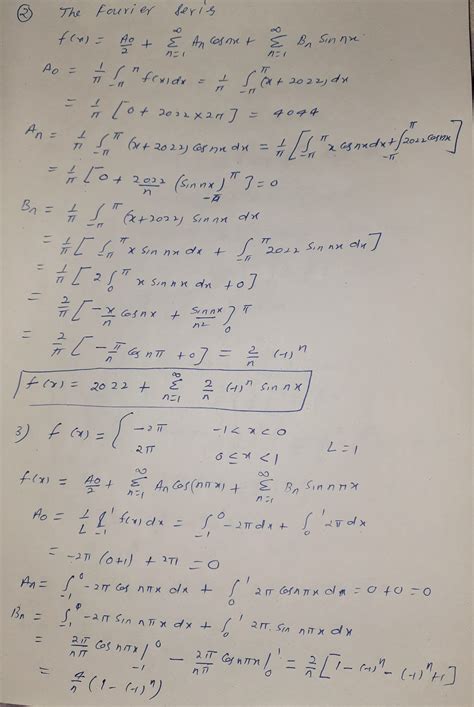 ② The Fourier Seris
f(x) = A₀/2 + Σ_{n=1}^{∞} An cosnx + Σ_{n=1}^{∞} Bn Sin nx
A₀ = 1/π ∫_{-π}^{π} f(x)dx = 1/π ∫_{-π}^{π} (x+2022)dx
= 1/π [0 + 2022×2π] = 4044
An = 1/π ∫_{-π}^{π} (x+2022) cosnx dx = 1/π [∫_{-π}^{π} x cosnx dx + ∫_{-π}^{π} 2022 cosnx]
= 1/π [0 + 2022/n (sin nx)_{-π}^{π}] = 0
Bn = 1/π ∫_{-π}^{π} (x+2022) sin nx dx
= 1/π [∫_{-π}^{π} x sin nx dx + ∫_{-π}^{π} 2022 sin nx dx]
= 1/π [2 ∫_{0}^{π} x sin nx dx + 0]
= 2/π [-x/n cosnx + sinnx/n²]_{0}^{π}
= 2/π [-π/n cos nπ + 0] = 2/n (-1)ⁿ
f(x) = 2022 + Σ_{n=1}^{∞} 2/n (-1)ⁿ sin nx
3) f(x) = { -2π -1<x<0
2π 0≤x<1 L=1
f(x) = A₀/2 + Σ_{n=1}^{∞} An cos(nπx) + Σ_{n=1}^{∞} Bn Sin nπx
A₀ = 1/L ∫_{-1}^{1} f(x)dx = ∫_{-1}^{0} -2π dx + ∫_{0}^{1} 2π dx
= -2π (0+1) + 2π = 0
An = ∫_{-1}^{0} -2π cos nπx dx + ∫_{0}^{1} 2π cosnπx dx = 0+0 = 0
Bn = ∫_{-1}^{0} -2π sin nπx dx + ∫_{0}^{1} 2π sin nπx dx
= 2π/nπ cos nπx|_{-1}^{0} - 2π/nπ cosnπx|_{0}^{1} = 2/n [1-(-1)ⁿ-(-1)ⁿ+1]
= 4/n (1-(-1)ⁿ)